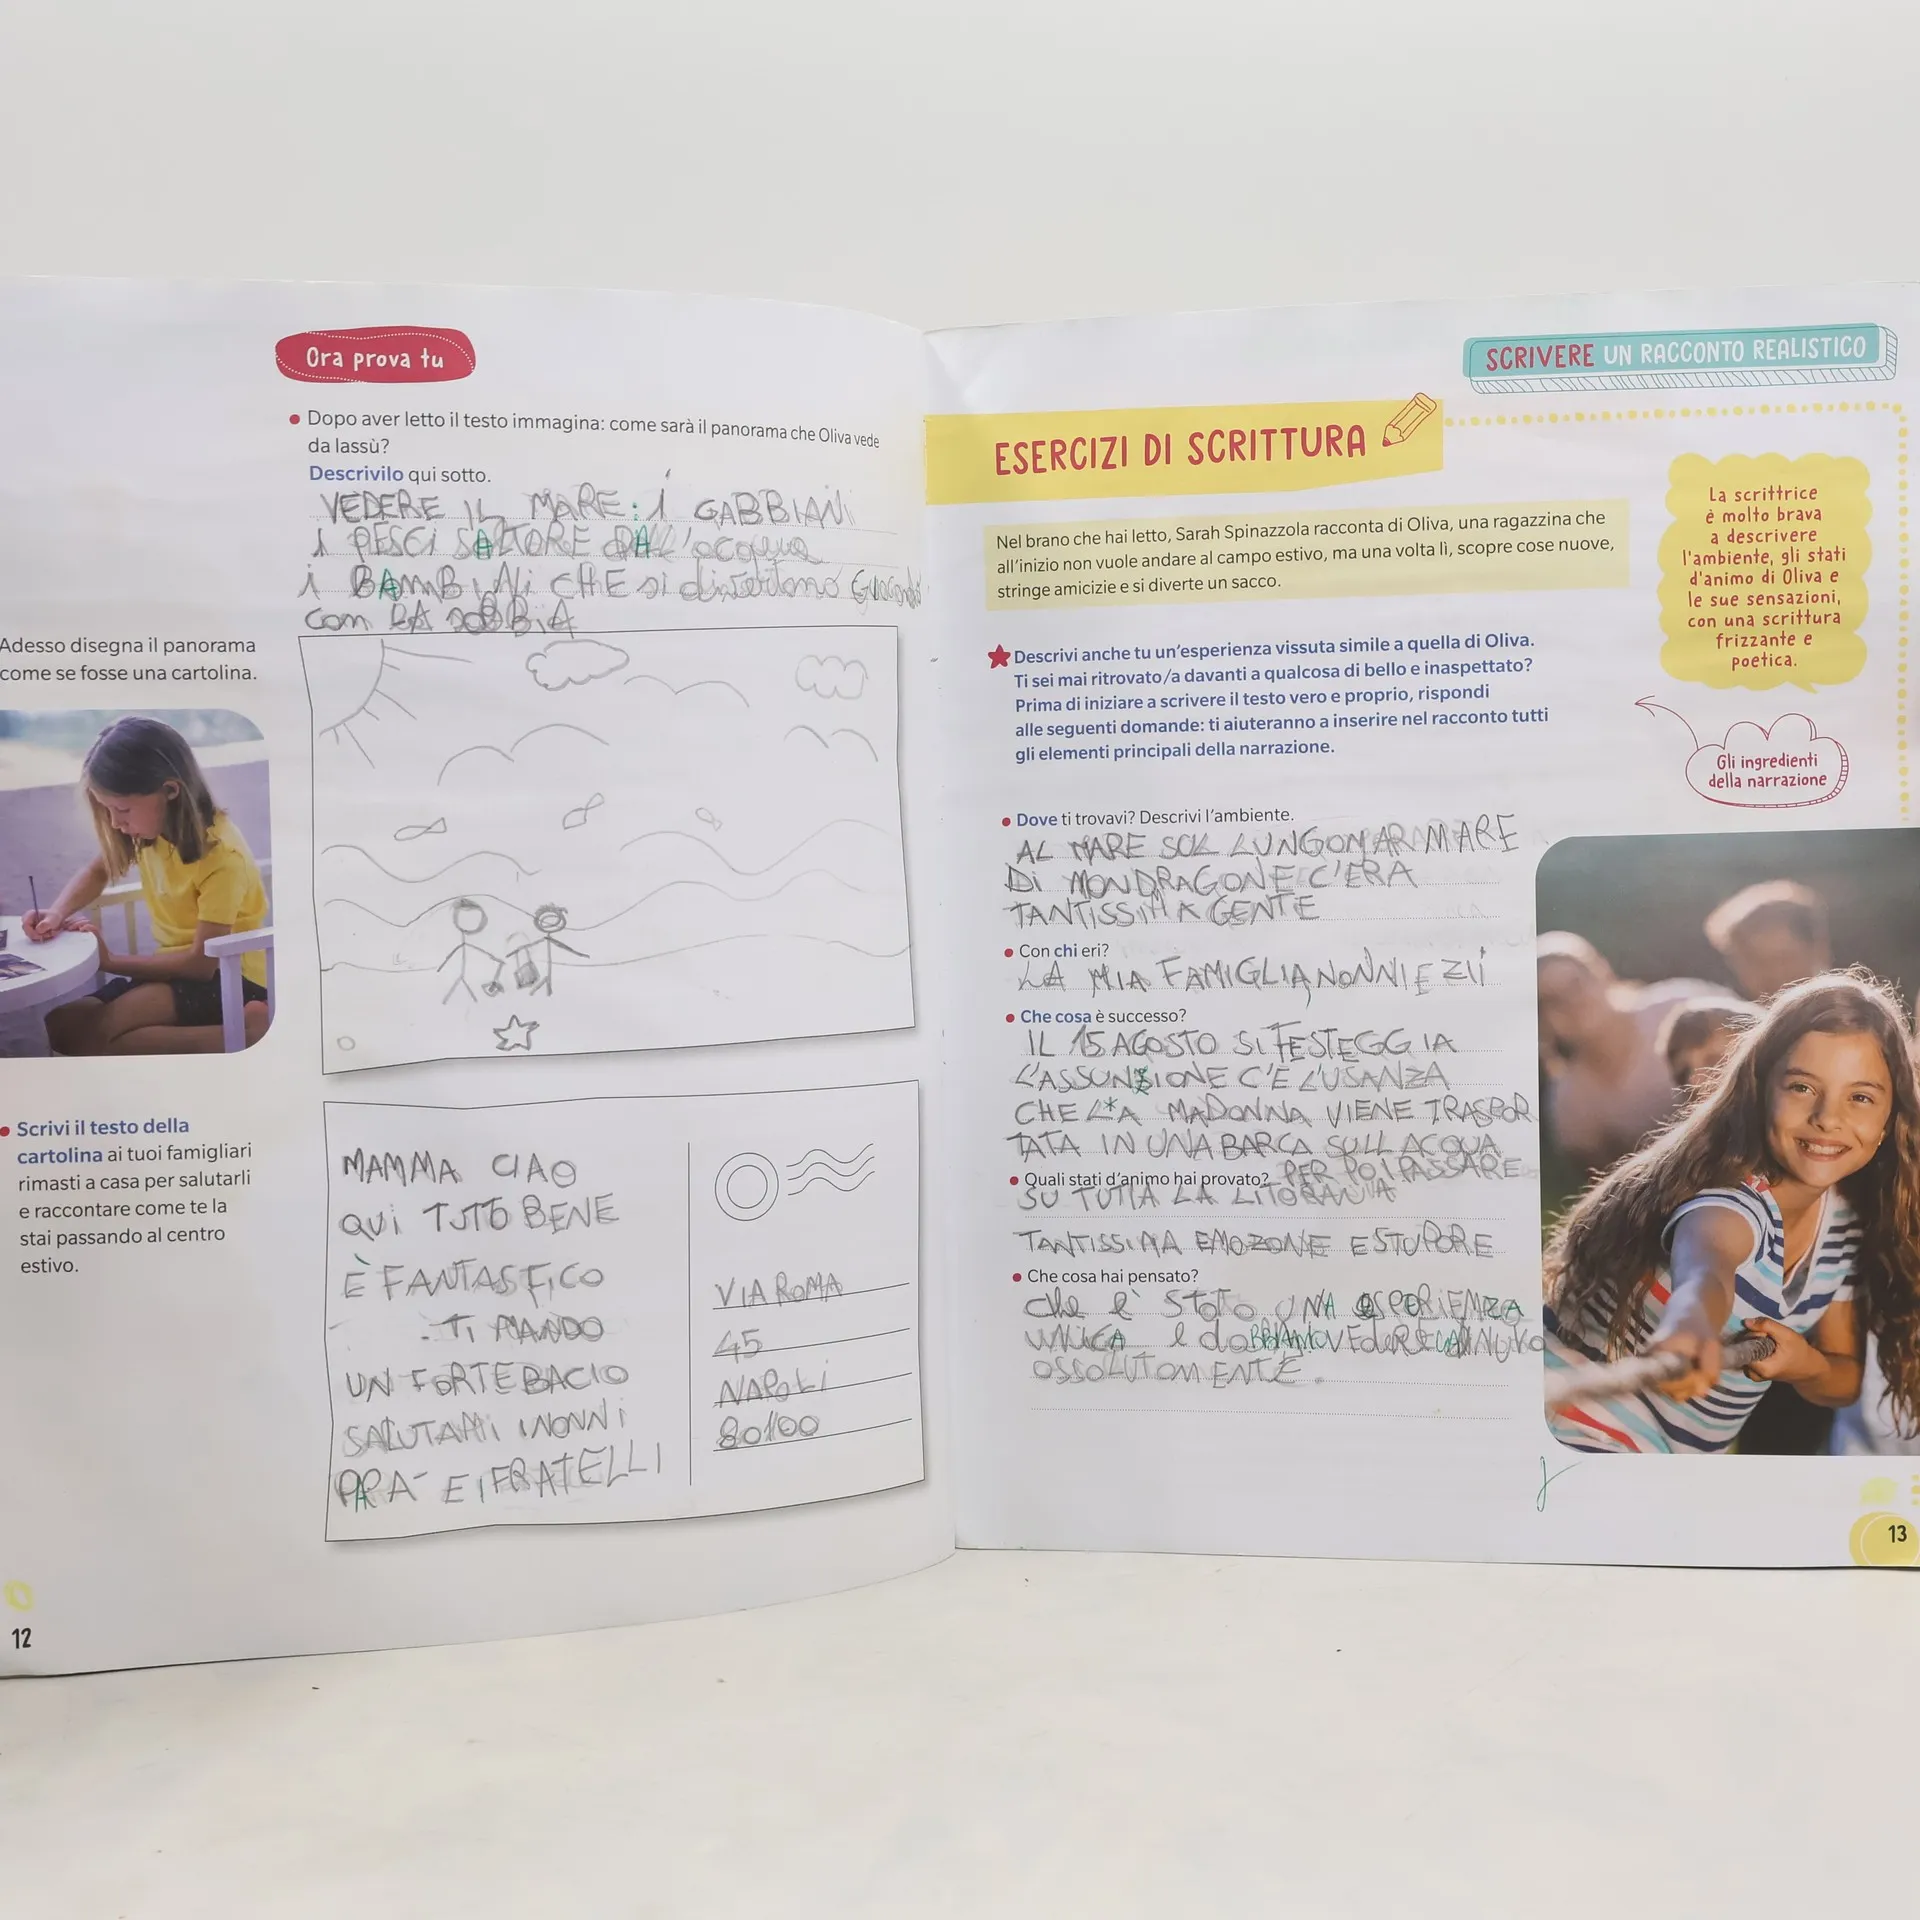 Ora prova tu
Dopo aver letto il testo immagina: come sarà il panorama che Oliva vede
da lassù?
Descrivilo qui sotto.
VEDERE IL MARE: i GABBIANI
i PESCi SALTORE DALL'acqua
i BAMBiNi CHE si divertono
con LA SOBBiA
Adesso disegna il panorama
come se fosse una cartolina.
Scrivi il testo della
cartolina ai tuoi famigliari
rimasti a casa per salutarli
e raccontare come te la
stai passando al centro
estivo.
MAMMA CIAO
QUi TUTO BENE
È FANTASTiCO
. Ti MANDO
UN FORTE BACIO
SALUTAMi i NONNi
PAPA E i FRATELLI
VIA ROMA
45
NAPOLi
80100
12
SCRIVERE UN RACCONTO REALISTICO
ESERCIZI DI SCRITTURA
Nel brano che hai letto, Sarah Spinazzola racconta di Oliva, una ragazzina che
all'inizio non vuole andare al campo estivo, ma una volta lì, scopre cose nuove,
stringe amicizie e si diverte un sacco.
La scrittrice
è molto brava
a descrivere
l'ambiente, gli stati
d'animo di Oliva e
le sue sensazioni,
con una scrittura
frizzante e
poetica.
Descrivi anche tu un'esperienza vissuta simile a quella di Oliva.
Ti sei mai ritrovato/a davanti a qualcosa di bello e inaspettato?
Prima di iniziare a scrivere il testo vero e proprio, rispondi
alle seguenti domande: ti aiuteranno a inserire nel racconto tutti
gli elementi principali della narrazione.
Gli ingredienti
della narrazione
Dove ti trovavi? Descrivi l'ambiente.
AL MARE SUL LUNGOMARMARE
Di MONDRAGONE C'ERA
TANTISSIMA GENTE
Con chi eri?
LA MIA FAMIGLIA, NONNI E ZII
Che cosa è successo?
IL 15 AGOSTO Si FESTEGGIA
L'ASSUNZIONE C'È L'USANZA
CHE LA MADONNA VIENE TRASPOR
TATA IN UNA BARCA SULL ACQUA
PER POI PASSARE
Quali stati d'animo hai provato?
SU TUTTA LA LITORANIA
TANTISSIMA EMOZONE E STUPORE
Che cosa hai pensato?
che è STOTO UNA ESPERIENZA
UNICA e
OSSOLUTOMENTE.
13